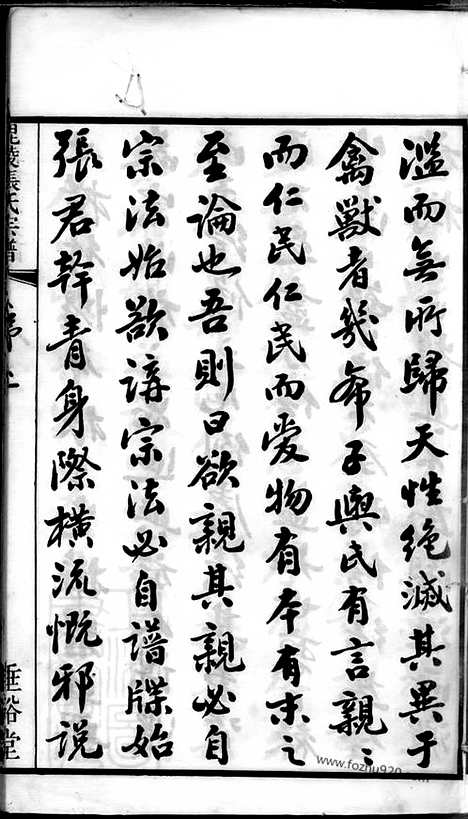 濫而無所歸天性絶滅其異于
禽獸者幾希子輿氏有言親〻
而仁民仁民而愛物有本有末之
至論也吾則曰欲親其親必自
宗法始欲講宗法必自譜牒始
張君幹青身際橫流慨邪說
毘陵張氏宗譜
垂裕堂
www.fozhu920.com